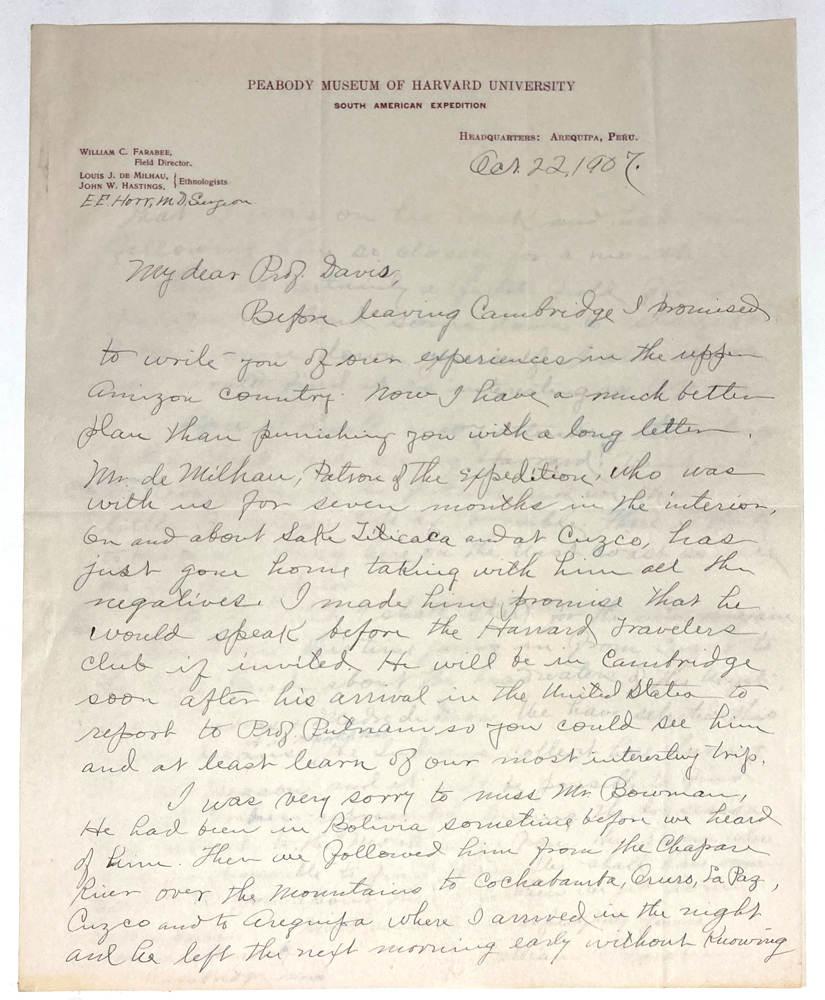 PEABODY MUSEUM OF HARVARD UNIVERSITY
SOUTH AMERICAN EXPEDITION
HEADQUARTERS: AREQUIPA, PERU.
Oct. 22, 1907.
WILLIAM C. FARABEE,
Field Director.
LOUIS J. DE MILHAU,
JOHN W. HASTINGS, } Ethnologists
E.F. Horr, M.D. Surgeon
My dear Prof. Davis,
Before leaving Cambridge I promised
to write you of our experiences in the upper
Amizon country. Now I have a much better
plan than punishing you with a long letter.
Mr. de Milhau, Patron of the Expedition, who was
with us for seven months in the interior,
on and about Lake Titicaca and at Cuzco, has
just gone home taking with him all the
negatives. I made him promise that he
would speak before the Harvard Travelers
Club if invited. He will be in Cambridge
soon after his arrival in the United States to
report to Prof. Putnam so you could see him
and at least learn of our most interesting trip.
I was very sorry to miss Mr. Bowman,
He had been in Bolivia sometime before we heard
of him. Then we followed him from the Chapare
River over the mountains to Cochabamba, Oruro, La Paz,
Cuzco and to Arequipa where I arrived in the night
and he left the next morning early without knowing